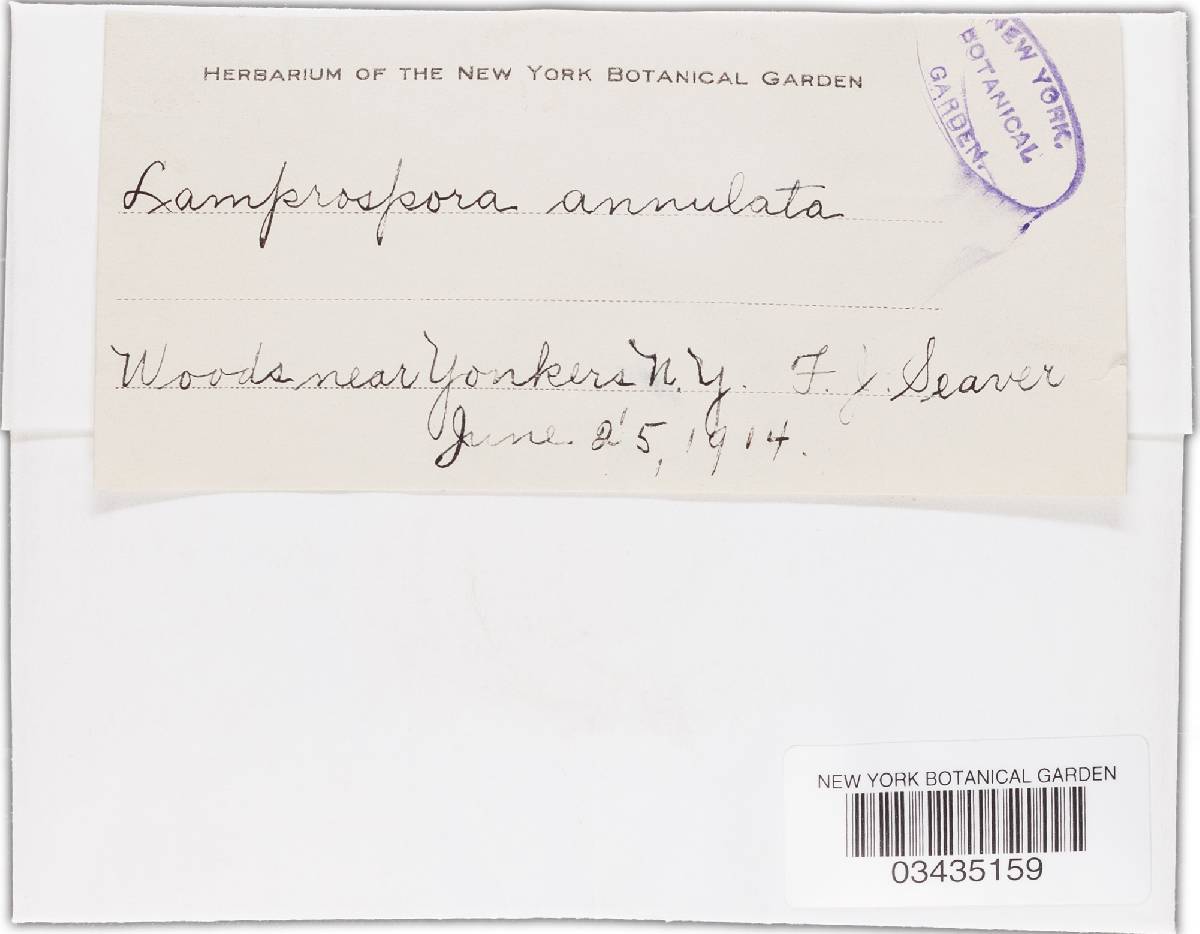 HERBARIUM OF THE NEW YORK BOTANICAL GARDEN
NEW YORK
BOTANICAL
GARDEN.
Lamprospora annulata
Woods near Yonkers N.Y. F. J. Seaver
June 25, 1914.
NEW YORK BOTANICAL GARDEN
03435159